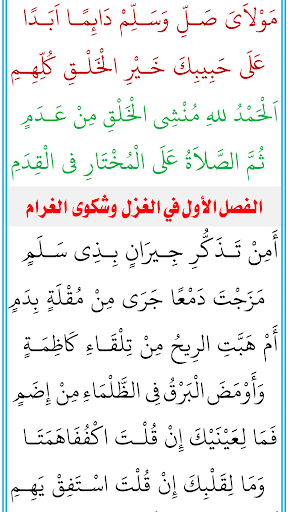 مَوْلَاىَ صَــلِّ وَسَــلِّــمْ دَائِـمًــا أَبَــدًا
عَلَى حَبِيبِكَ خَــيْرِ الْخَلْــقِ كُلِّهِــمِ
اَلْحَمْدُ للهِ مُنْشِى الْخَلْقِ مِنْ عَـدَمٍ
ثُمَّ الصَّلَاةُ عَلَى الْمُخْتَارِ فِى الْقِدَمِ
الفصل الأول في الغزل وشكوى الغرام
أَمِنْ تَـذَكُّرِ جِـيرَانٍ بِـذِى سَـلَمٍ
مَزَجْتَ دَمْعًا جَرَى مِنْ مُقْلَةٍ بِدَمِ
أَمْ هَبَّتِ الرِيحُ مِنْ تِلْقَاءِ كَاظِمَـةٍ
وَأَوْمَضَ الْبَرْقُ فِى الظَّلْمَاءِ مِنْ إِضَمِ
فَمَا لِعَيْنَيْكَ إِنْ قُلْـتَ اكْفُفَاهَمَتَـا
وَمَا لِقَلْبِكَ إِنْ قُلْتَ اسْتَفِقْ يَهِـمِ